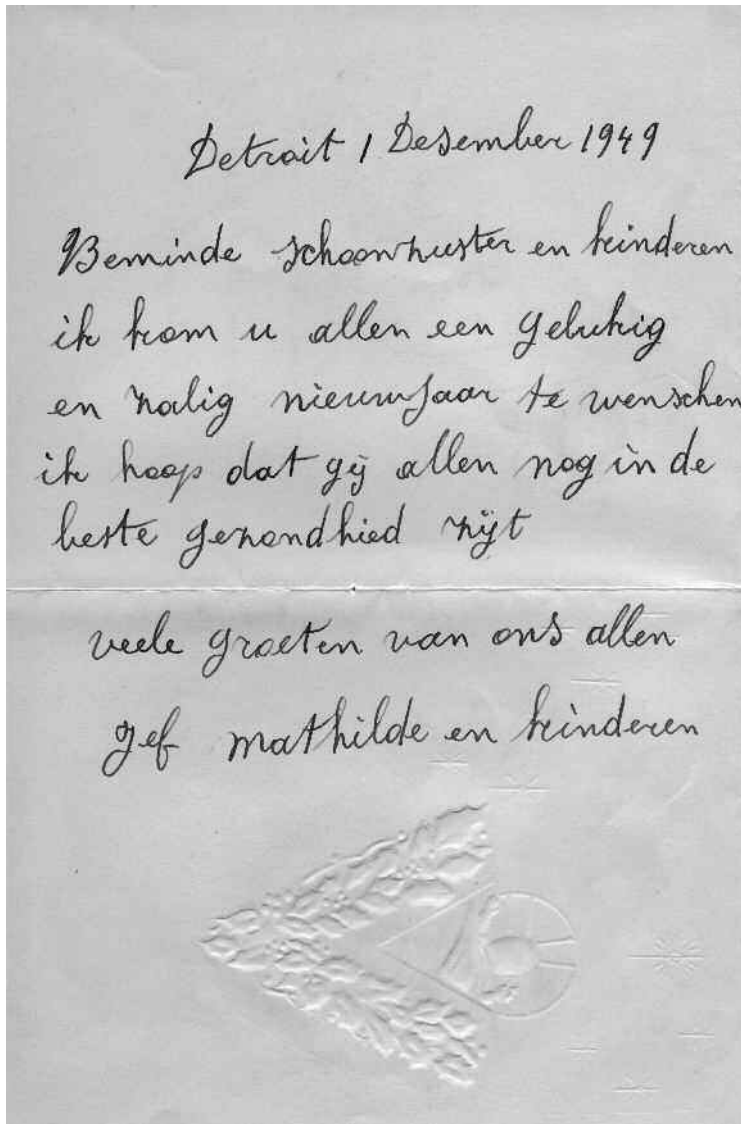 Detroit 1 Desember 1949
Beminde schoonzuster en kinderen
ik kom u allen een gelukig
en zalig nieuwjaar te wenschen
ik hoop dat gij allen nog in de
beste gezondhied zijt
veele groeten van ons allen
Jef mathilde en kinderen